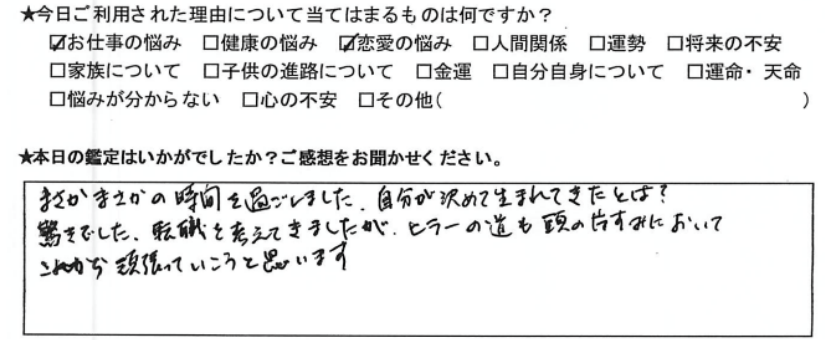 ★今日ご利用された理由について当てはまるものは何ですか？
☑お仕事の悩み　□健康の悩み　☑恋愛の悩み　□人間関係　□運勢　□将来の不安
□家族について　□子供の進路について　□金運　□自分自身について　□運命・天命
□悩みが分からない　□心の不安　□その他(　　　)
★本日の鑑定はいかがでしたか？ご感想をお聞かせください。
まさかまさかの時間を過ごしました、自分が決めて生まれてきたとは？
驚きでした、転職を考えてきましたが、ヒラーの道も頭の片すみにおいて
これから頑張っていこうと思います